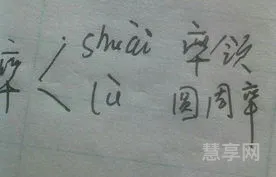 率 shuài 率领
lǜ 圆周率
慧享网